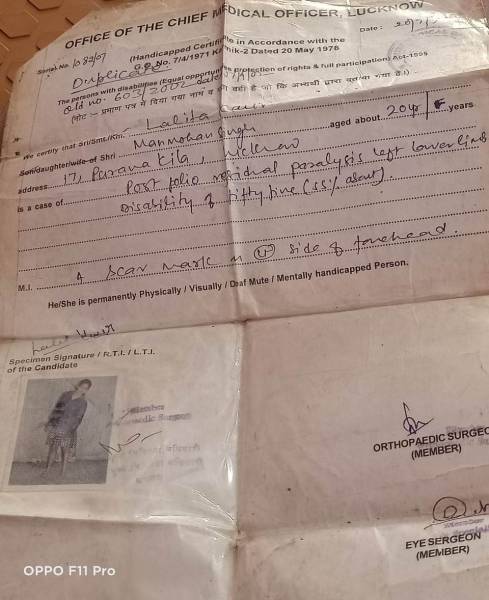 OFFICE OF THE CHIEF MEDICAL OFFICER, LUCKNOW
Serial No. 1082/07
Date :
(Handicapped Certificate in Accordance with the
G.O. No. 7/4/1971 Dated 20 May 1978
Duplicate
The persons with disabilities (Equal opportunities protection of rights & full participation) Act-1995
Old no. 603/2002
(नोट :- प्रमाण पत्र में दिया गया नाम व वही है जो कि अभ्यर्थी द्वारा बताया गया है।)
We certify that Sri/Smt./Km. Lalita
Son/daughter/wife of Shri Manmohan Singh aged about 20 yrs / F years
address 17, Purana Kila, Lucknow
is a case of Post Polio residual paralysis left lower limb
Disability of fifty five (55% about).
M.I. A scar mark on side of forehead.
He/She is permanently Physically / Visually / Deaf Mute / Mentally handicapped Person.
Specimen Signature / R.T.I. / L.T.I.
of the Candidate
Member
Orthopaedic Surgeon
ORTHOPAEDIC SURGEO
(MEMBER)
Member
EYE SERGEON
(MEMBER)
OPPO F11 Pro